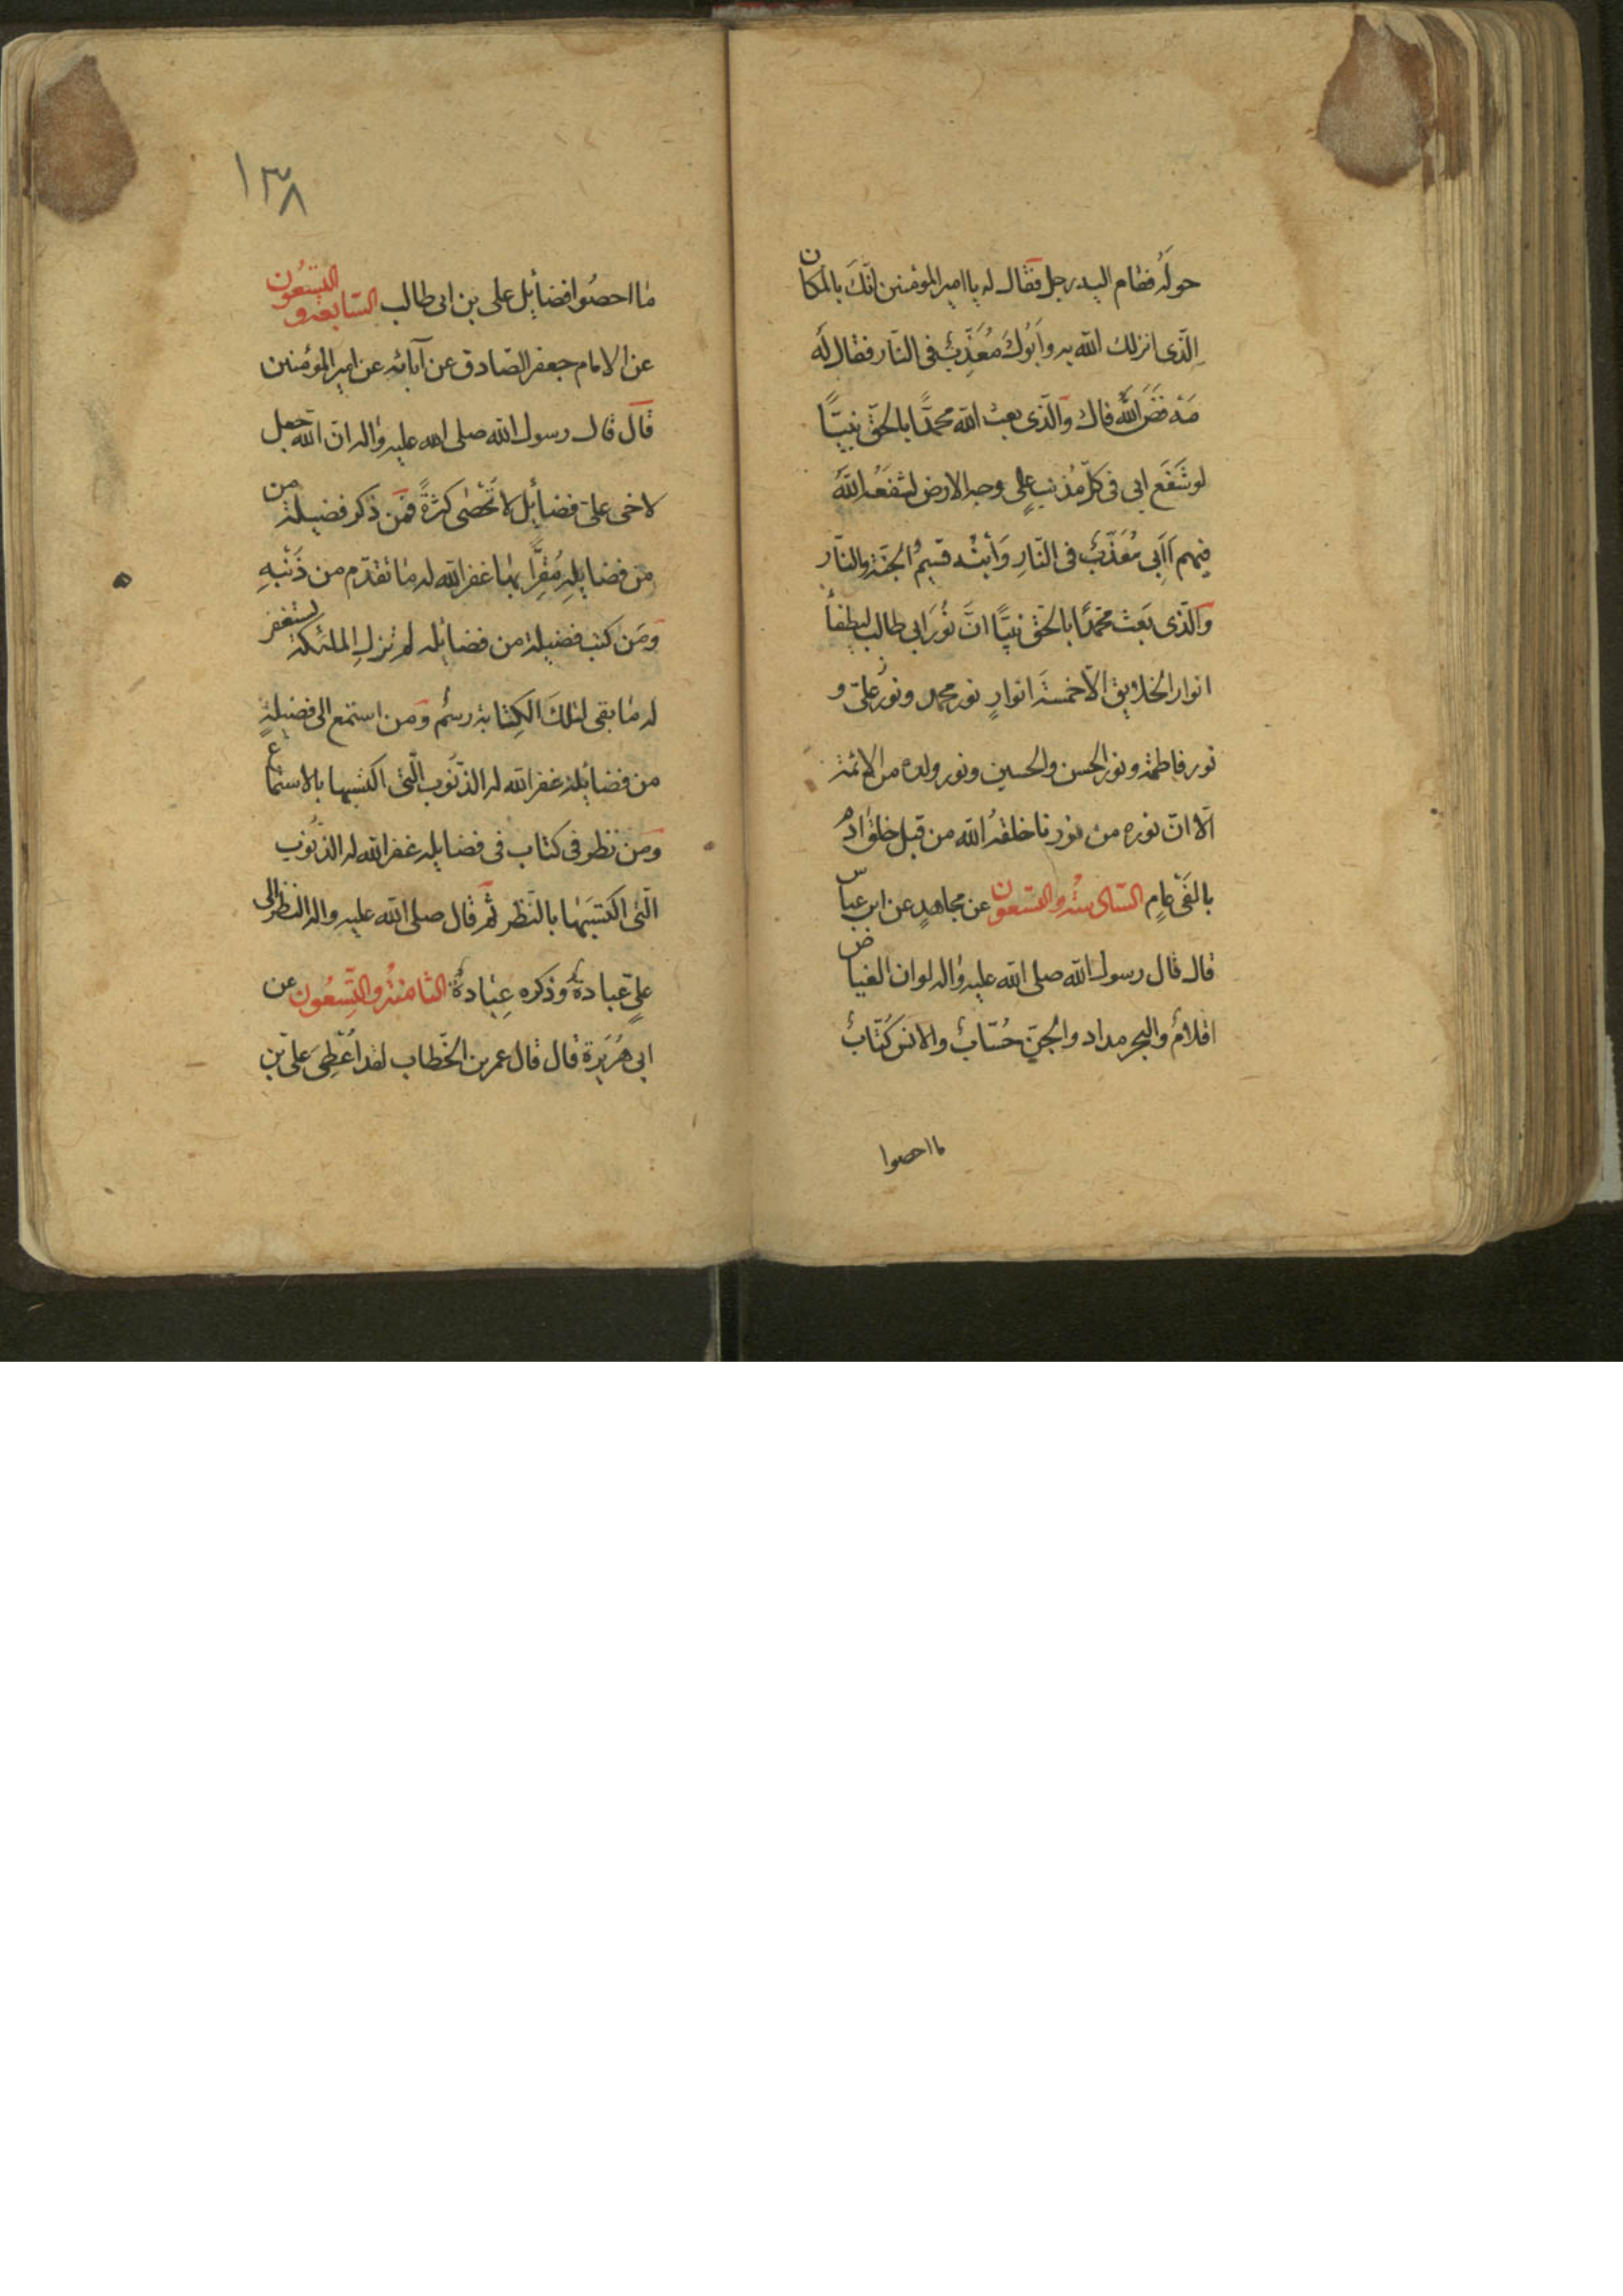 حولَه فقام اليه رجل فقال له يا امير المؤمنين انّكَ بالمكان
الّذى انزلك الله به وَاَبُوكَ مُعَذّبٌ فى النّار فقال لَه
مَه فَضَ اللهُ فاك والّذى بعث الله محمّدًا بالحقّ نبيًّا
لو شَفَعَ ابى فى كلّ مُذنبٍ على وجه الارض لشفعَهُ اللهُ
فيهم أاَبى مُعَذّبٌ فى النّارِ وَابنُه قسيمُ الجنّة والنّار
والّذى بَعَثَ محمّدًا بالحقّ نبيًّا انَّ نُورَ ابى طالب ليطفأ
انوار الخلايق الّا خمسةَ انوارٍ نور محمد ونور علىّ و
نور فاطمة ونور الحسن والحسين ونور ولده من الائمة
الا انّ نوره من نورنا خلقهُ الله من قبل خلق ادم
بالفَى عامٍ السّادسةُ والتسعون عن مجاهدٍ عن ابن عباس
قال قال رسول الله صلى الله عليه واله لو ان الغياض
اقلامٌ والبحر مداد والجنّ حُسّابٌ والانس كُتّابٌ
ما احصوا
١٣٨
ما احصُوا فضائل على بن ابى طالب السّابعة والتسعُون
عن الامام جعفر الصّادق عن آبائه عن امير المؤمنين
قال قال رسول الله صلى الله عليه واله انّ الله جعل
لاخى علىّ فضائل لا تُحصٰى كثرةً فمَن ذكر فضيلة من
من فضايلِه مُقِرًّا بها غفر الله له ما تقدّم من ذَنبِهِ
ومَن كتب فضيلة من فضائله لم تزلِ الملئكة تستغفر
له ما بقى لتلكَ الكِتابة رسمٌ ومن استمع الى فضيلةٍ
من فضائله غفر الله له الذّنُوب الّتى اكتسبها بالاستماع
ومَن نظر فى كتاب فى فضايله غفر الله له الذنُوب
الّتى اكتسَبَها بالنّظر ثم قال صلى الله عليه واله النظر الى
علىٍّ عبادةٌ وذكره عِبادةٌ الثامنةُ والتّسعُون عن
ابى هُرَيرة قال قال عمر بن الخَطاب لقد اُعْطِىَ علىّ بن